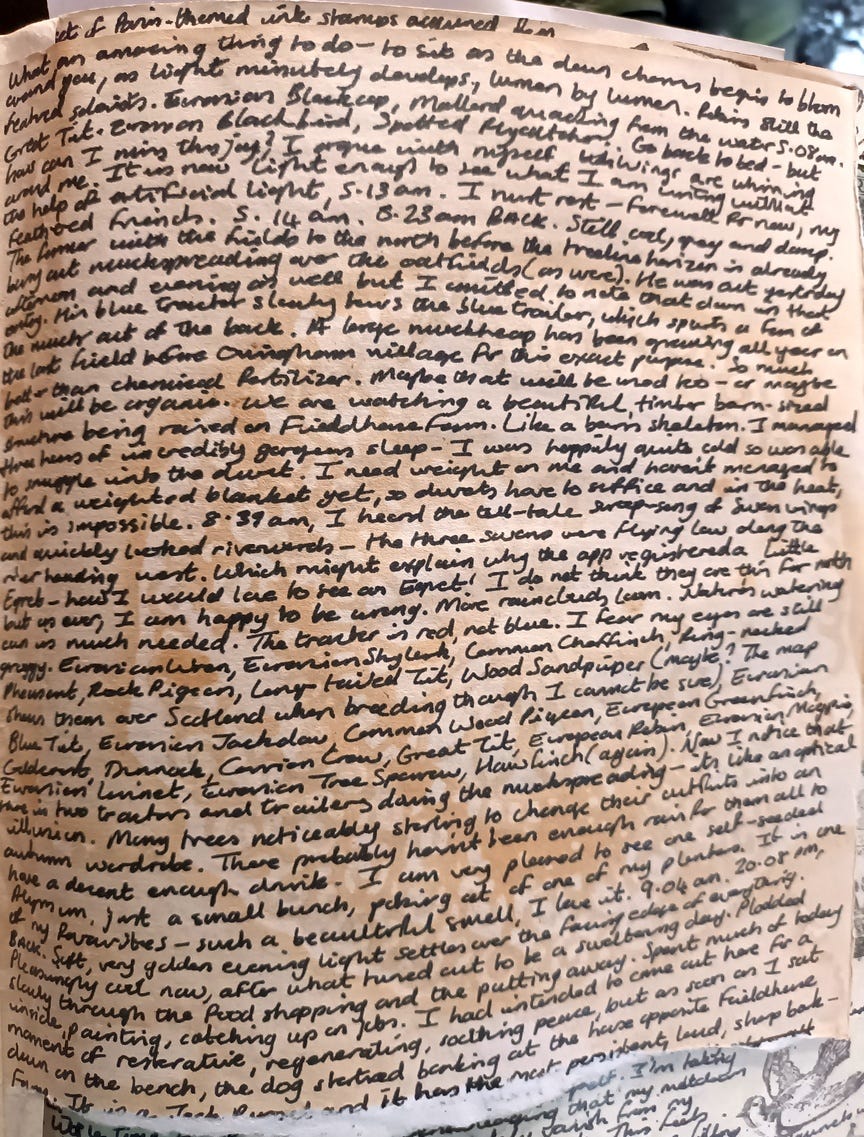 set of Paris-themed ink stamps acquired from
What an amazing thing to do - to sit as the dawn chorus begins to bloom
around you, as light minutely develops, lumen by lumen. Robins still the
featured soloists. Eurasian Blackcap, Mallard quacking from the water 5.08am.
Great Tit. Eurasian Blackbird, Spotted Flycatcher. Go back to bed - but
how can I miss this joy? I argue with myself. Wings are whirring
around me. It is now light enough to see what I am writing without
the help of artificial light, 5.13am. I must rest - farewell for now, my
feathered friends. 5.14am. 8.23am BACK. Still cool, grey and damp.
The farmer with the fields to the north before the treeline horizon is already
busy out muckspreading over the oatfields (as were). He was out yesterday
afternoon and evening as well but I omitted to note that down in that
entry. His blue tractor slowly hauls the blue trailer, which spurts a fan of
the muck out of the back. A large muckheap has been growing all year on
the last field before Ovingham village for this exact purpose. So much
better than chemical fertilizer. Maybe that will be used too - or maybe
this will be organic. We are watching a beautiful, timber barn-sized
structure being raised on Fieldhouse Farm. Like a barn skeleton. I managed
three hours of incredibly gorgeous sleep - I was happily quite cold so was able
to snuggle into the duvet. I need weight on me and haven't managed to
afford a weighted blanket yet, so duvets have to suffice and in the heat,
this is impossible. 8.39am, I heard the tell-tale swoop-song of swan wings
and quickly looked riverwards - the three swans were flying low along the
river heading west. Which might explain why the app registered a Little
Egret - how I would love to see an Egret! I do not think they are this far north
but as ever, I am happy to be wrong. More rainclouds loom. Nature's watering
can is much needed. The tractor is red, not blue. I fear my eyes are still
groggy. Eurasian Wren, Eurasian Skylark, Common Chaffinch, Ring-necked
Pheasant, Rock Pigeon, Long-tailed Tit, Wood Sandpiper (maybe? The map
shows them over Scotland when breeding though I cannot be sure), Eurasian
Blue Tit, Eurasian Jackdaw, Common Wood Pigeon, European Greenfinch,
Goldcrest, Dunnock, Carrion Crow, Great Tit, European Robin, Eurasian Magpie,
Eurasian Linnet, Eurasian Tree Sparrow, Hawfinch (again). Now I notice that
there is two tractors and trailers doing the muckspreading - it's like an optical
illusion. Many trees noticeably starting to change their outfits into an
autumn wardrobe. There probably hasn't been enough rain for them all to
have a decent enough drink. I am very pleased to see one self-seeded
Alyssum, just a small bunch, poking out of one of my planters. It is one
of my favourites - such a beautiful smell, I love it. 9.04am. 20.08pm,
BACK. Soft, very golden evening light settles over the facing edge of everything.
Pleasingly cool now, after what turned out to be a sweltering day. Plodded
slowly through the food shopping and the putting away. Spent much of today
inside, painting, catching up on jobs. I had intended to come out here for a
moment of restorative, regenerating, soothing peace, but as soon as I sat
down on the bench, the dog started barking at the house opposite Fieldhouse
Farm. It is a Jack Russel and it has the most persistent, loud, sharp bark -
I'm taking
that my
from my
This feels